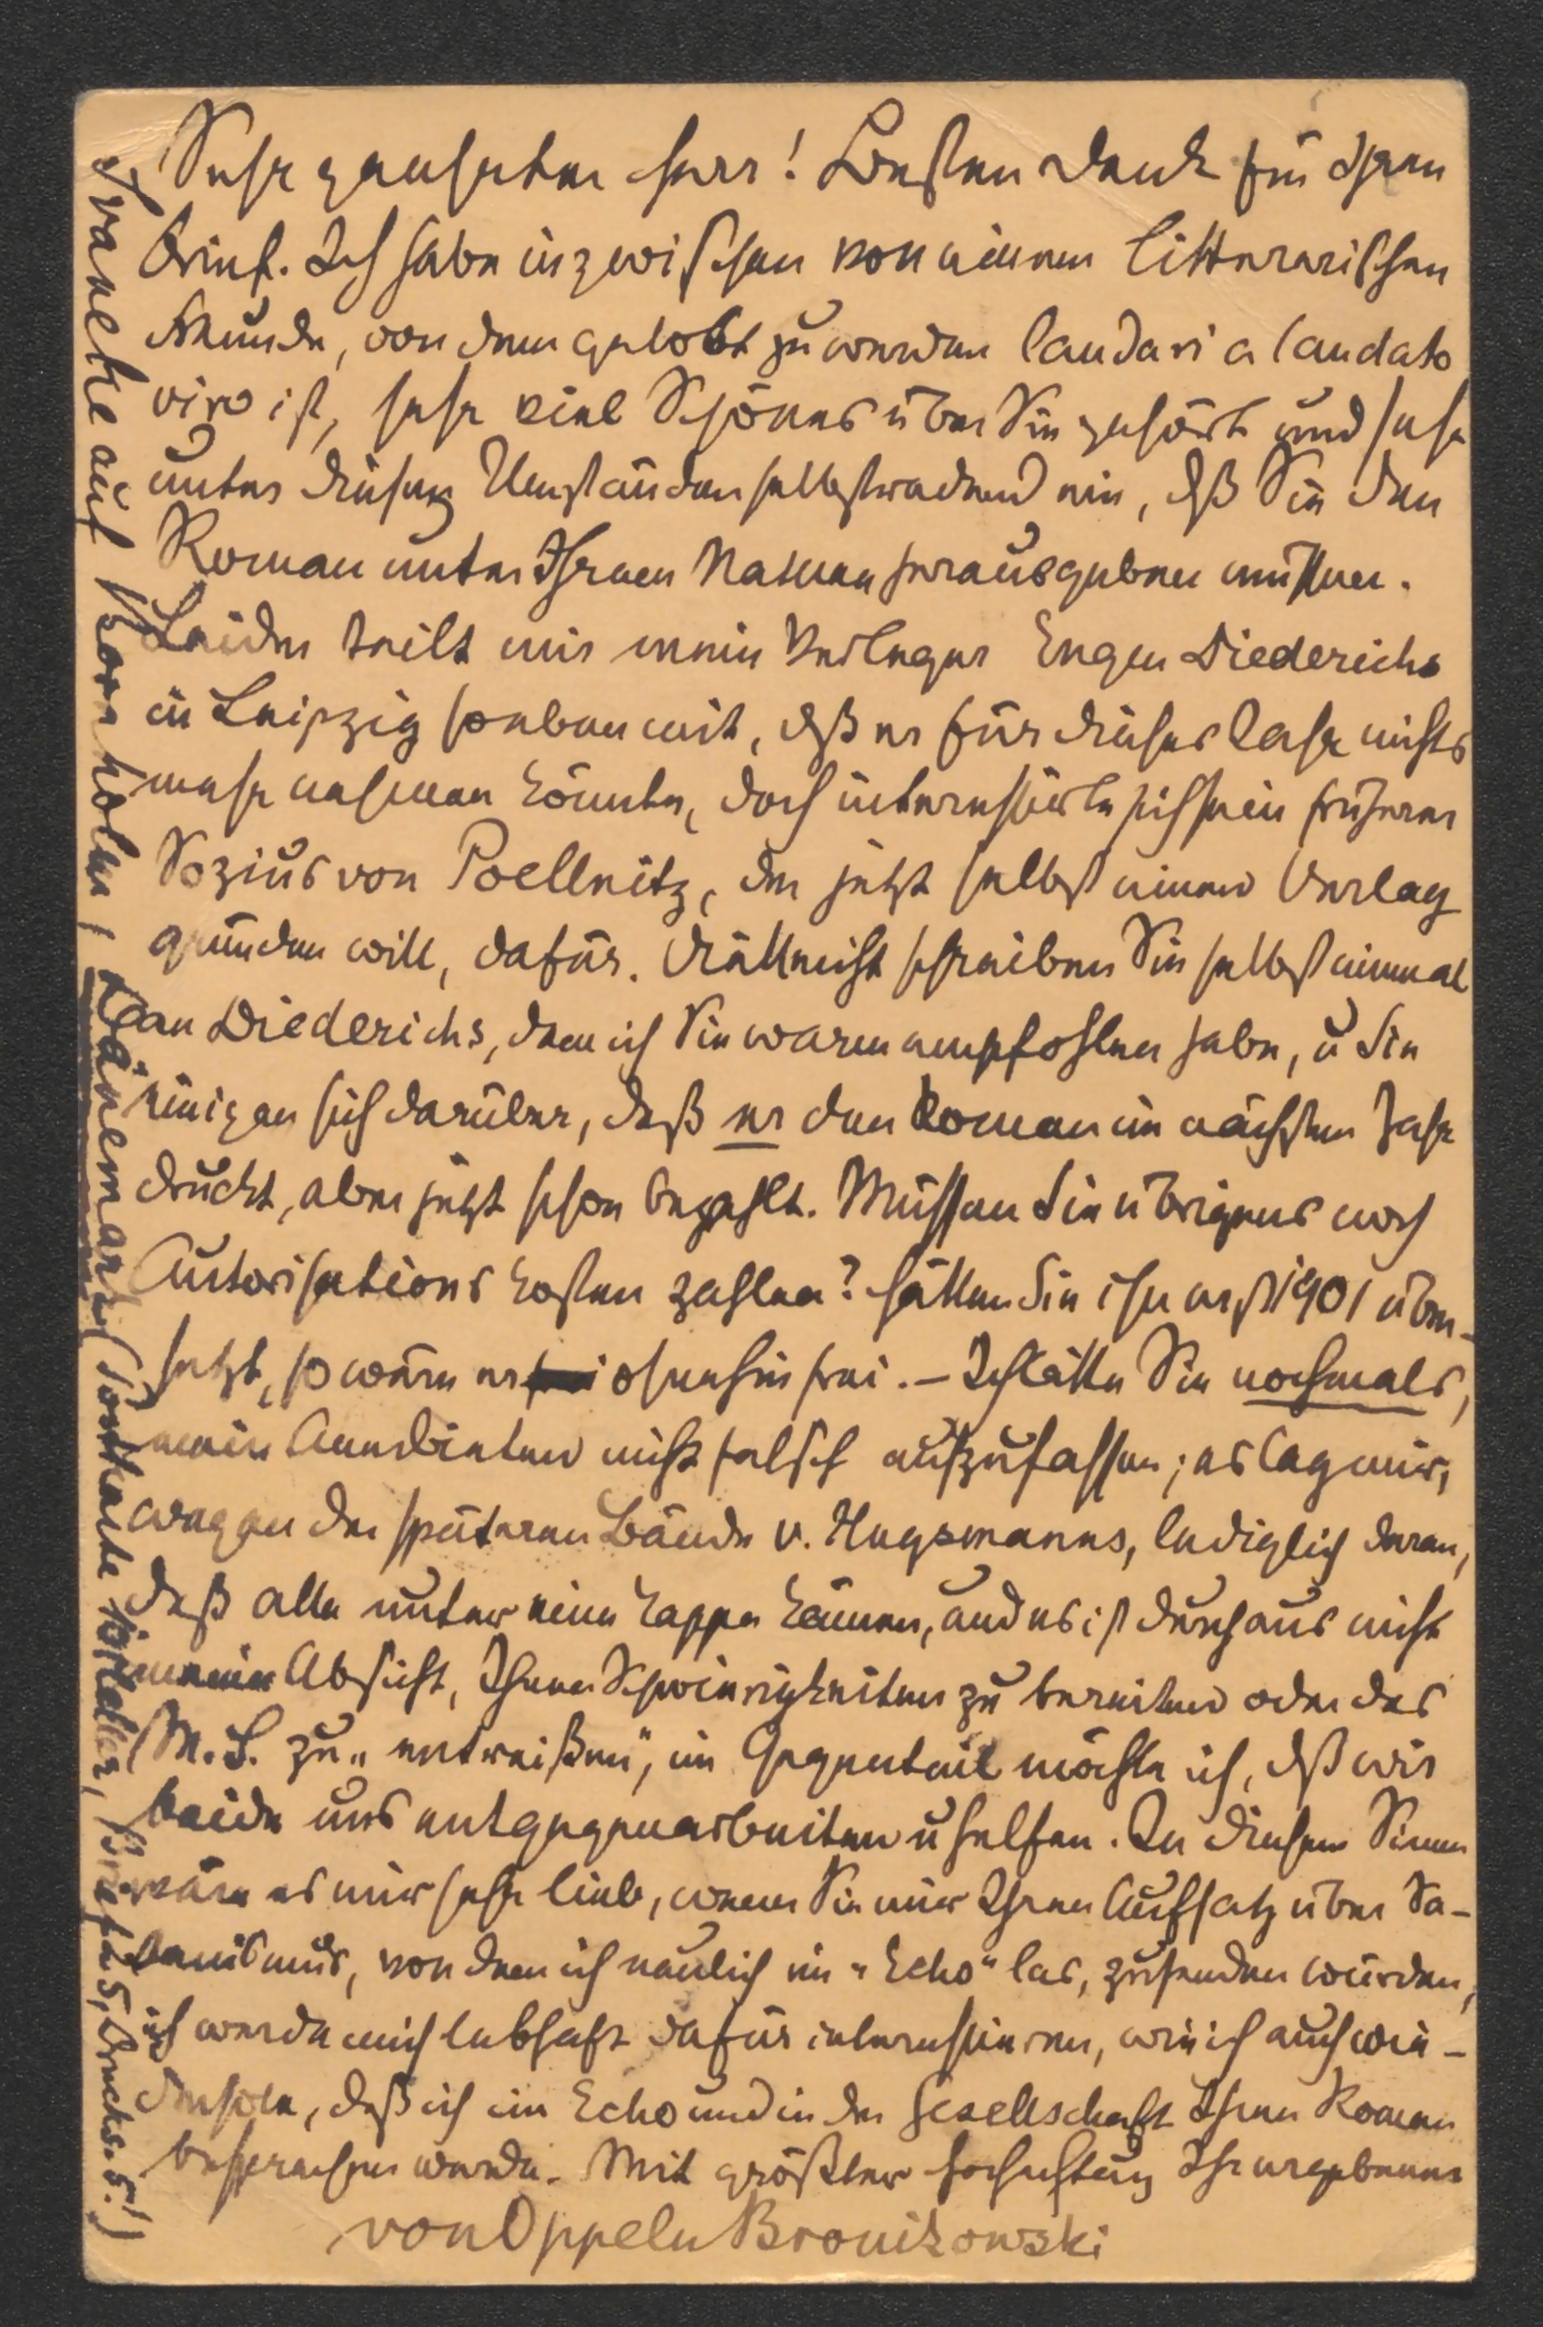 Sehr geehrter Herr! Besten Dank für Ihren
Brief. Ich habe inzwischen von einem litterarischen
Kunde, von dem gelobt zu werden laudari a laudato
viro ist, sehr viel Schönes über Sie gehört und sehe
unter diesen Umständen selbstredend ein, dß Sie den
Roman unter Ihrem Namen herausgeben müssen.
Leider teilt mir mein Verleger Eugen Diederichs
in Leipzig soeben mit, dß er für dieses Jahr nichts
mehr nehmen könnte, doch interessierte sich sein früherer
Sozius von Poellnitz, der jetzt selbst einen Verlag
gründen will, dafür. Vielleicht schreiben Sie selbst einmal
an Diederichs, dem ich Sie warm empfohlen habe, u Sie
einigen sich darüber, daß er den Roman im nächsten Jahr
druckt, aber jetzt schon bezahlt. Müssen Sie übrigens noch
Autorisationskosten zahlen? Hätten Sie ihn erst 1901 über-
setzt, so wäre er ohnehin frei. – Ich bitte Sie nochmals,
mein Anerbieten nicht falsch aufzufassen; es lag mir,
wegen der späteren Bände v. Huysmanns, lediglich daran,
daß alle unter eine Kappe kämen, und es ist durchaus nicht
meine Absicht, Ihnen Schwierigkeiten zu bereiten oder das
M.S. zu „entreißen", im Gegenteil möchte ich, dß wir
beide uns entgegenarbeiten u helfen. In diesem Sinne
wäre es mir sehr lieb, wenn Sie mir Ihren Aufsatz über Sa-
tanismus, von dem ich neulich im „Echo" las, zusenden würden,
ich werde mich lebhaft dafür interessieren, wie ich auch wie-
derhole, daß ich im Echo und in der Gesellschaft Ihren Roman
besprechen werde. Mit größter Hochachtung Ihr ergebener
von Oppeln Bronikowski
Svaneke auf Bornholm, Dänemark (Postkarte 10 Heller, Briefe 25, Drucks. 5!)